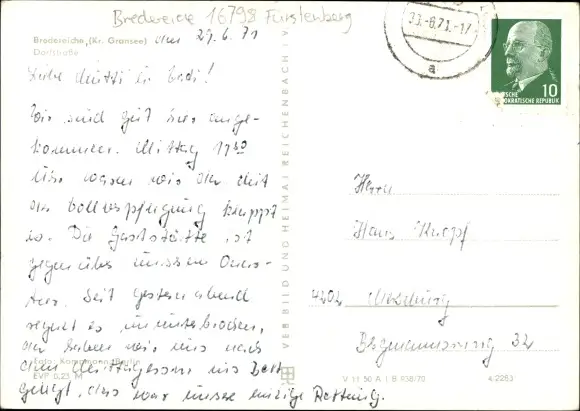 Bredereiche 16798 Fürstenberg
Bredereiche (Kr. Gransee)
Dorfstraße
den 29.6.71
Liebe Mutti u. Vati!
Wir sind gut hier ange-
kommen. Mittag 11 30
Uhr waren wir da. Mit
der Vollverpflegung klappt
es. Die Gaststätte ist
gegenüber unserem Quar-
tier. Seit gestern abend
regnet es ununterbrochen,
da haben wir uns nach
dem Mittagessen ins Bett
gelegt, das war unsere einzige Rettung.
Foto: Kampmann, Berlin
EVP 0,23 M
VEB BILD UND HEIMAT REICHENBACH I V
30.-6.71.-17
a
10
DEUTSCHE
DEMOKRATISCHE REPUBLIK
Herrn
Hans Knopf
4202 Merseburg
32
V 11 50 A 1 B 938/70
4/2283